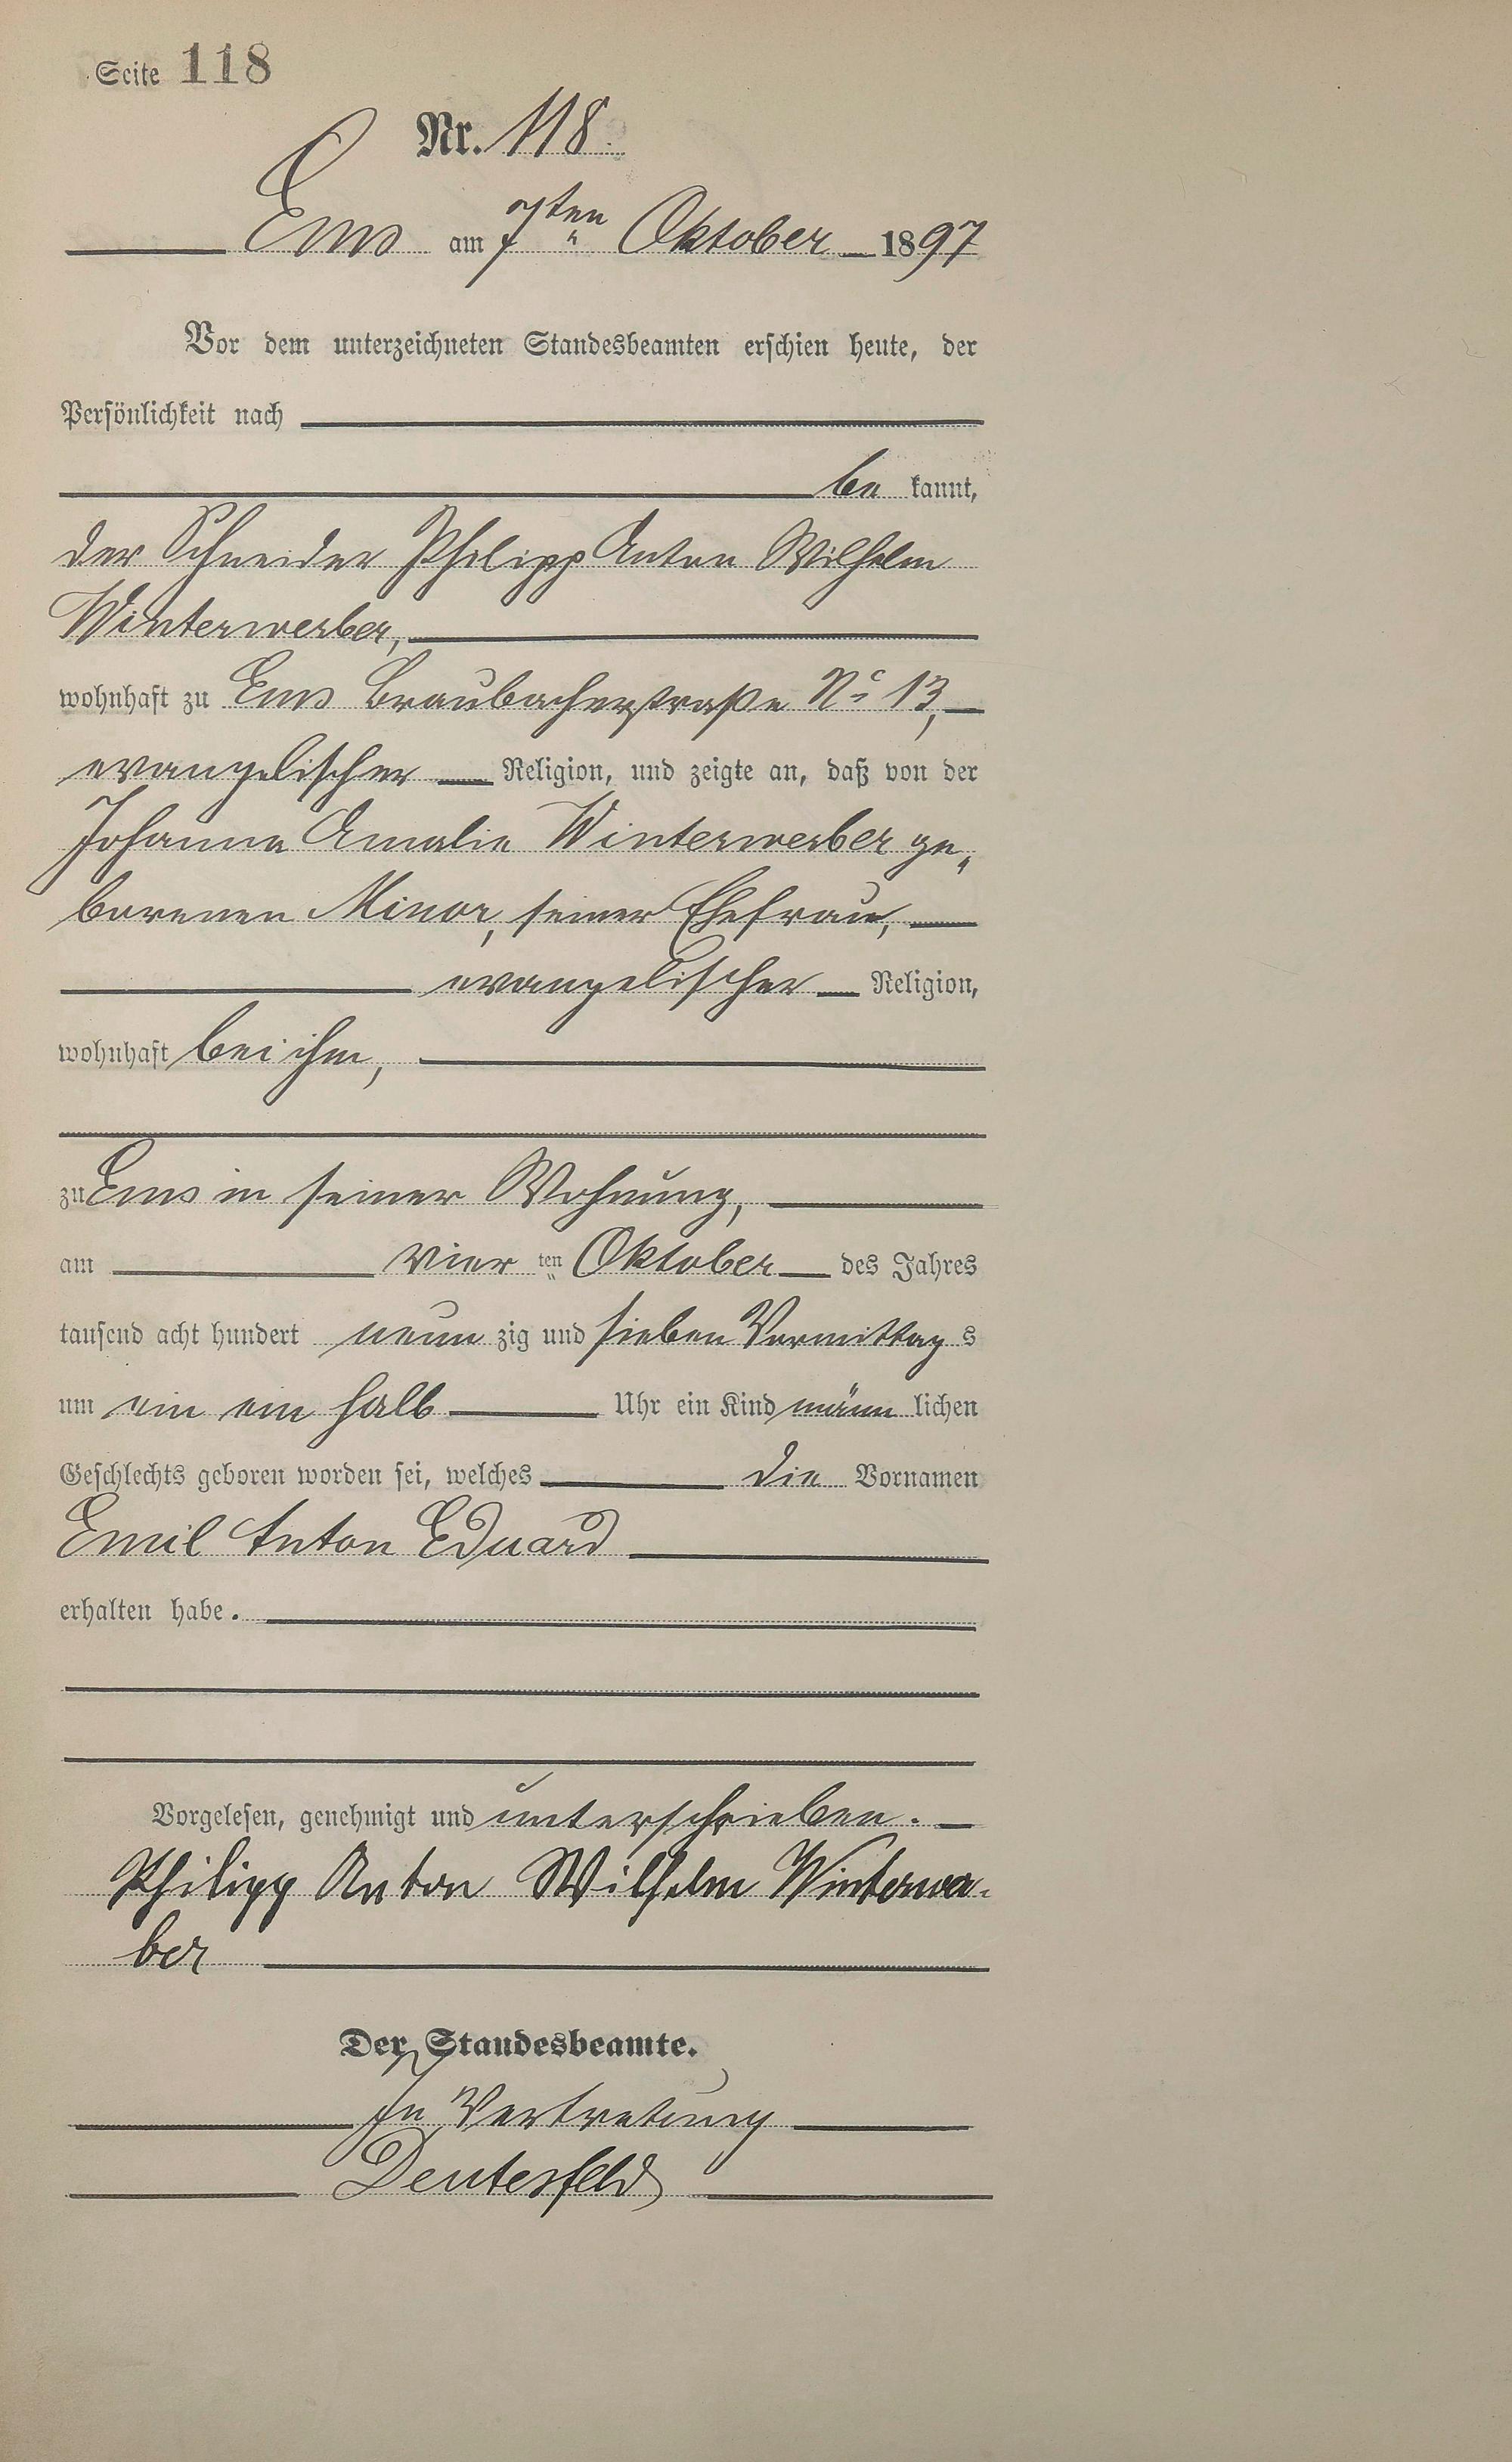 Seite 118
Nr. 118.
Ems am 7ten Oktober 1897
Vor dem unterzeichneten Standesbeamten erschien heute, der
Persönlichkeit nach
be kannt,
der Schneider Philipp Anton Wilhelm
Winterwerber,
wohnhaft zu Ems Braubacherstraße No 13,
evangelischer Religion, und zeigte an, daß von der
Johanna Amalie Winterwerber ge„
borenen Minor, seiner Ehefrau,
evangelischer Religion,
wohnhaft bei ihm,
zu Ems in seiner Wohnung,
am vier ten Oktober des Jahres
tausend acht hundert neun zig und sieben Vormittag s
um ein ein halb Uhr ein Kind männ lichen
Geschlechts geboren worden sei, welches die Vornamen
Emil Anton Eduard
erhalten habe.
Vorgelesen, genehmigt und unterschrieben.
Philipp Anton Wilhelm Winterwer-
ber
Der Standesbeamte.
In Vertretung
Deutesfeld